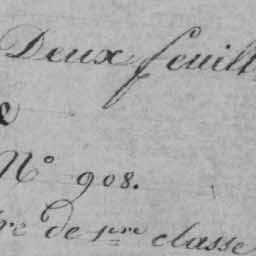 Deux feuill
N° 908.
de 1ère classe